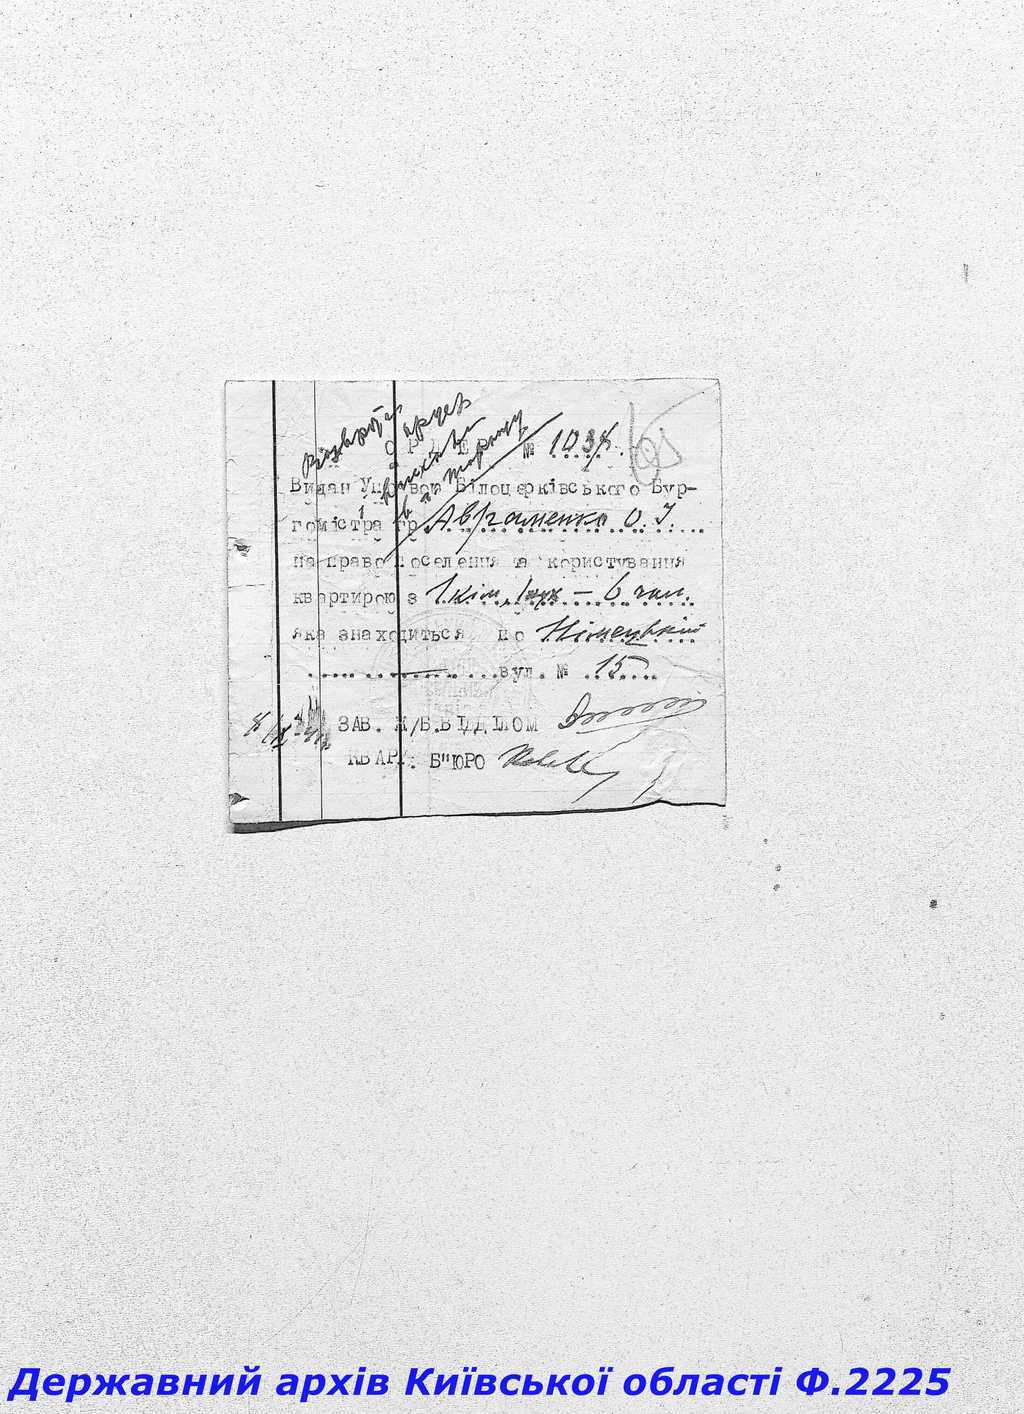 ОРДЕР № 103
Видан Управою Білоцерківського Бур-
гомістра гр. Авраменко О. І.
на право поселення та користування
квартирою з 1 кім., 1 кух – 6 чол.
яка знаходиться по Німецькій
вул. № 15
ЗАВ. Ж/Б.ВІДДІЛОМ
КВАРТ. Б"ЮРО
Державний архів Київської області Ф.2225